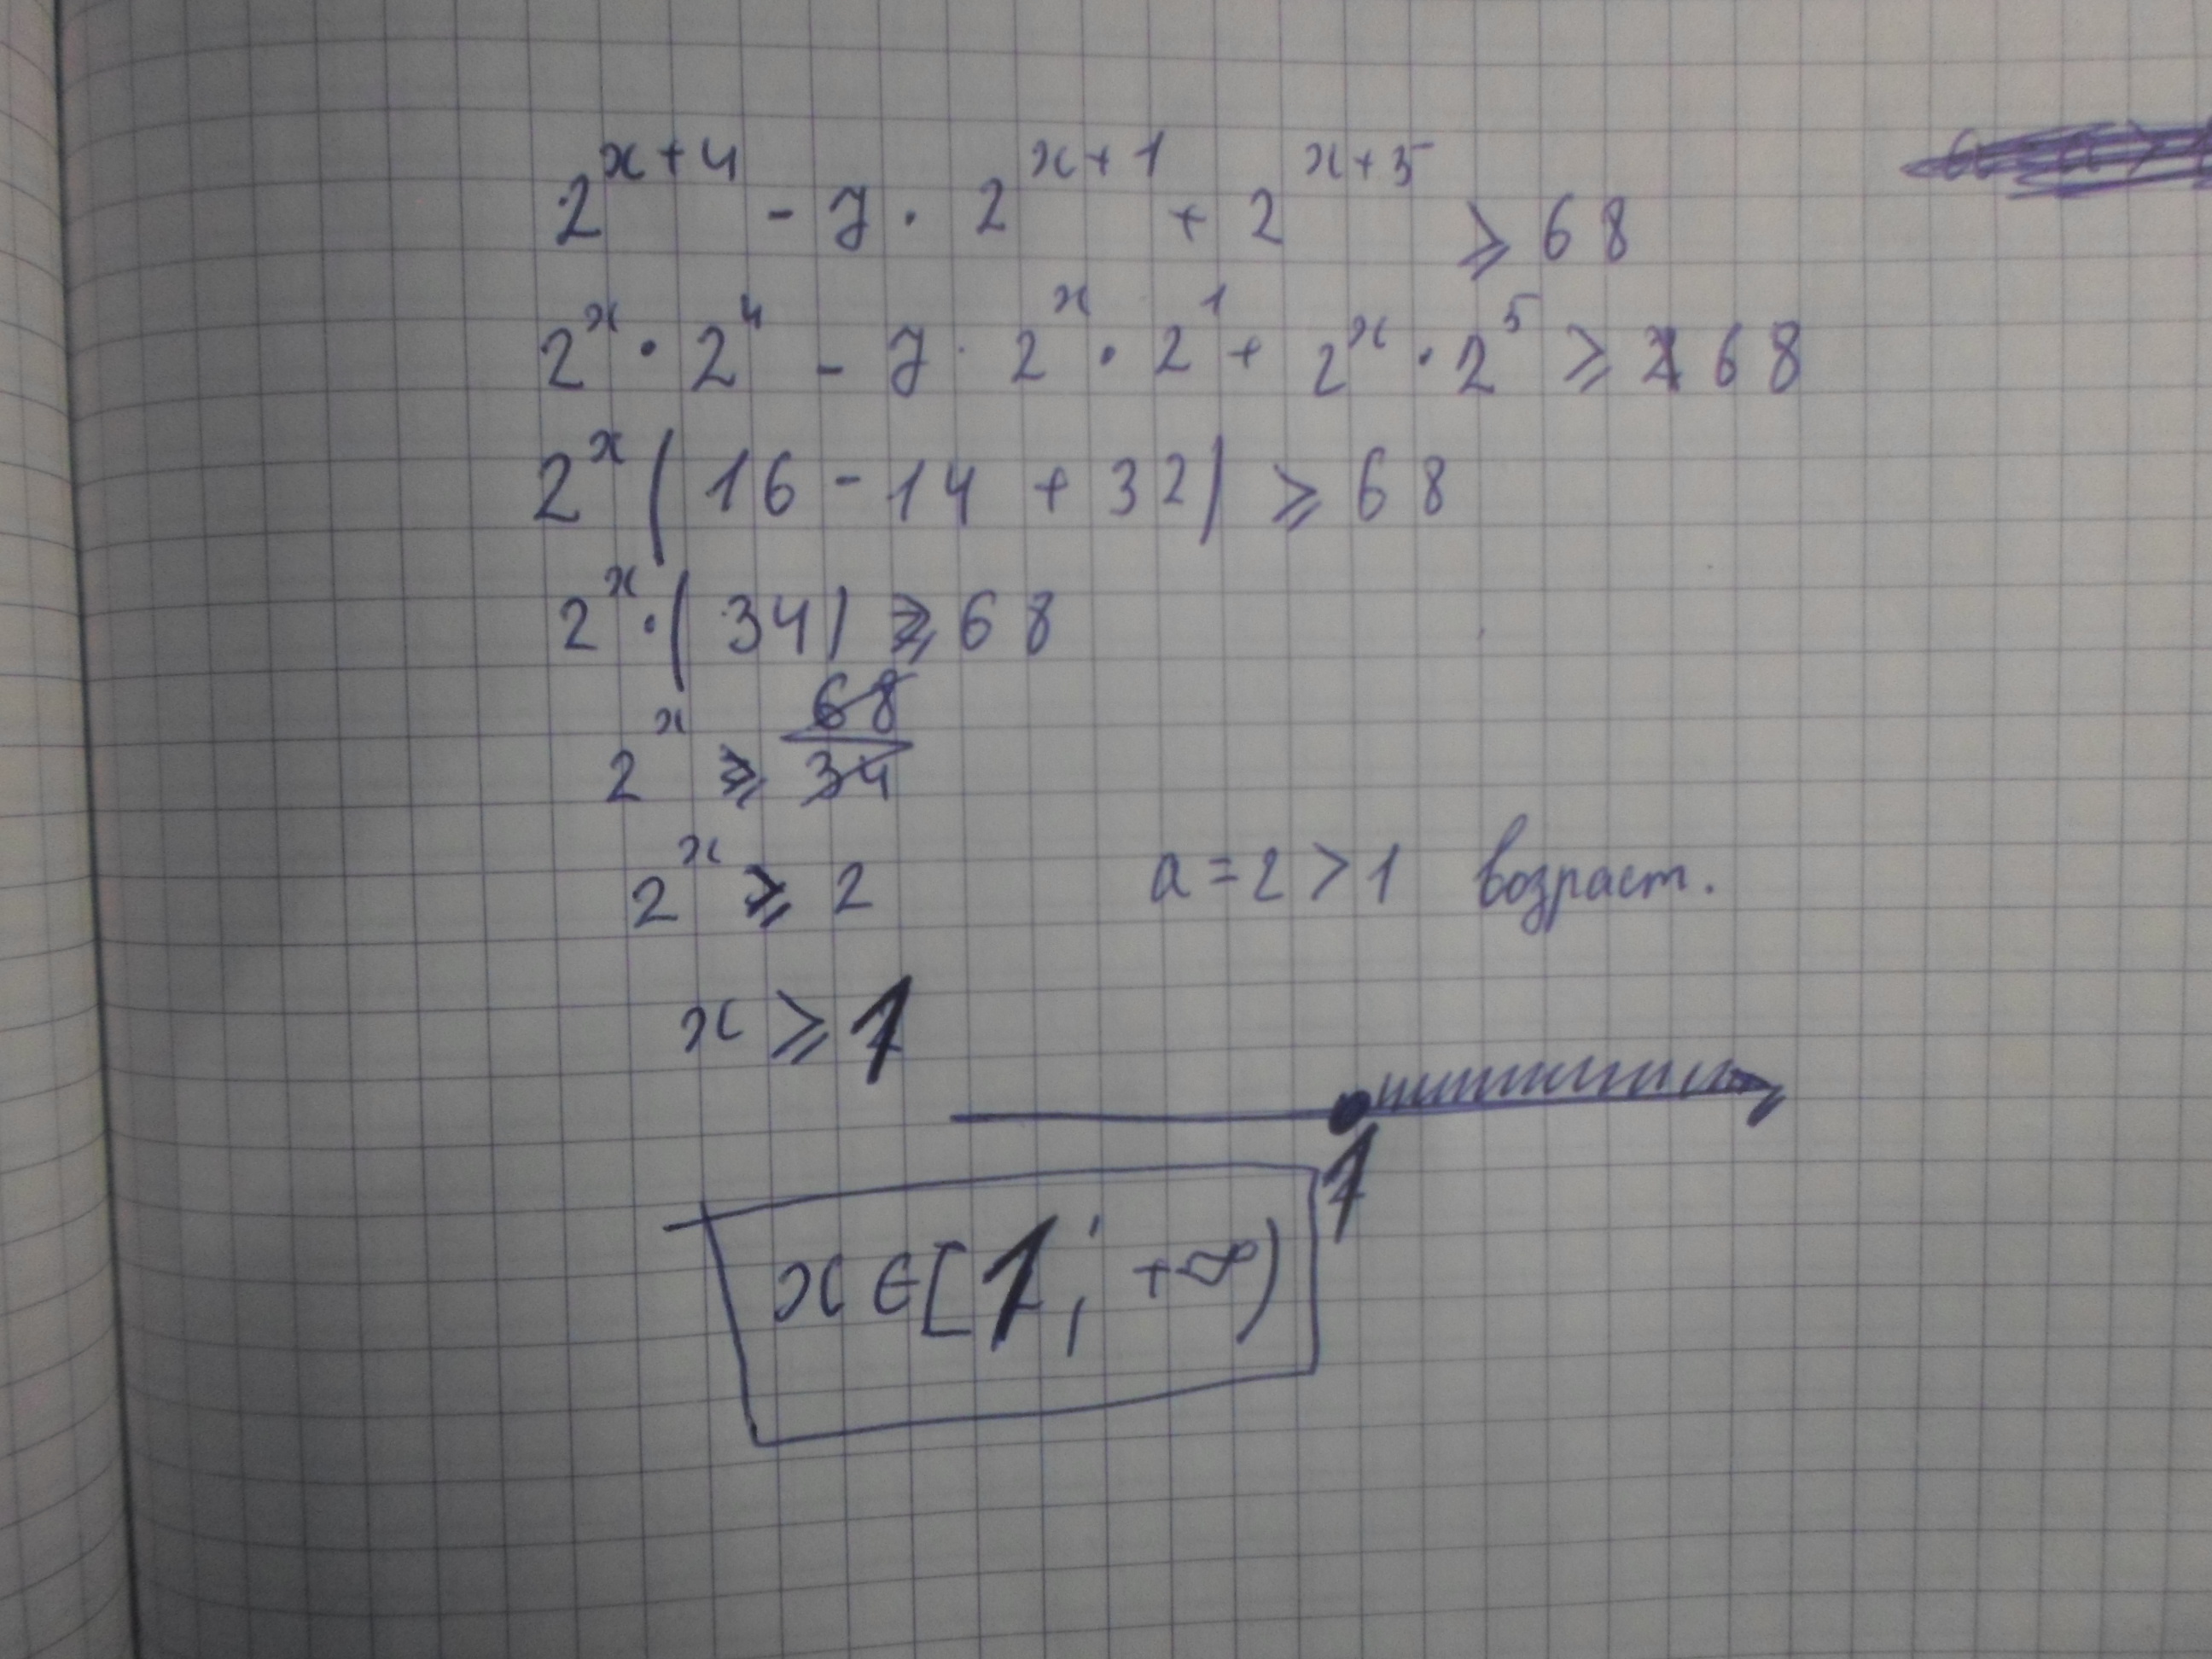 2^{x+4} - 7 · 2^{x+1} + 2^{x+5} ⩾ 68
2^x · 2^4 - 7 · 2^x · 2^1 + 2^x · 2^5 ⩾ 68
2^x (16 - 14 + 32) ⩾ 68
2^x · (34) ⩾ 68
2^x ⩾ 68/34
2^x ⩾ 2 a = 2 > 1 возраст.
x ⩾ 1
1
x ∈ [1; +∞)